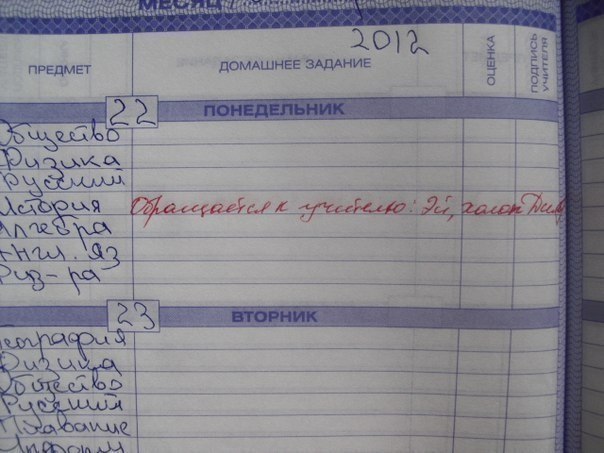 МЕСЯЦ /
2012
ПРЕДМЕТ ДОМАШНЕЕ ЗАДАНИЕ ОЦЕНКА ПОДПИСЬ УЧИТЕЛЯ
22 ПОНЕДЕЛЬНИК
Общество
Физика
Русский
История Обращается к учителю: Эй, холоп
Алгебра
Англ. яз
Физ-ра
23 ВТОРНИК
География
Физика
Общество
Русский
Плавание